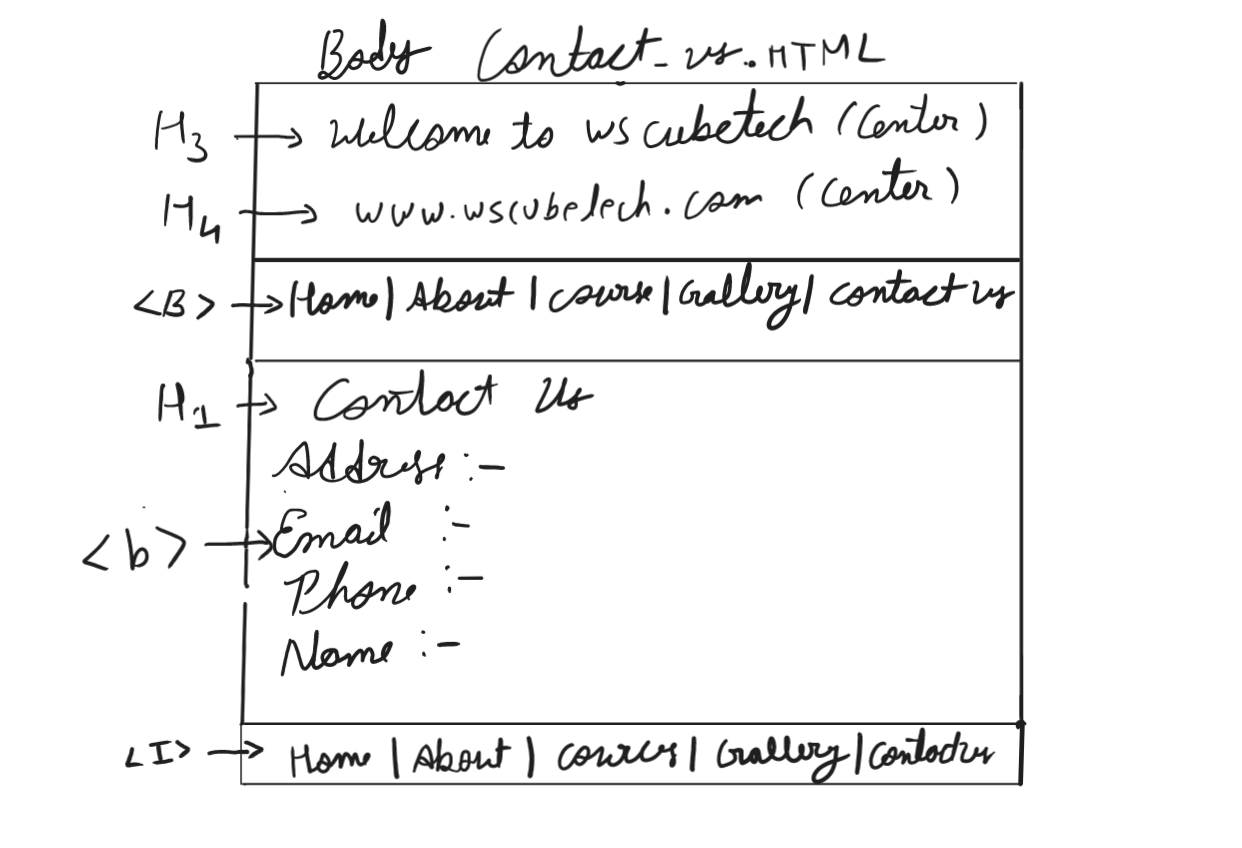 Body Contact_us.HTML
H3 → Welcome to wscubetech (Center)
H4 → www.wscubetech.com (Center)
<B> → Home | About | course | Gallery | contact us
H1 → Contact Us
Address :-
<b> → Email :-
Phone :-
Name :-
<I> → Home | About | Cources | Gallery | Contact us